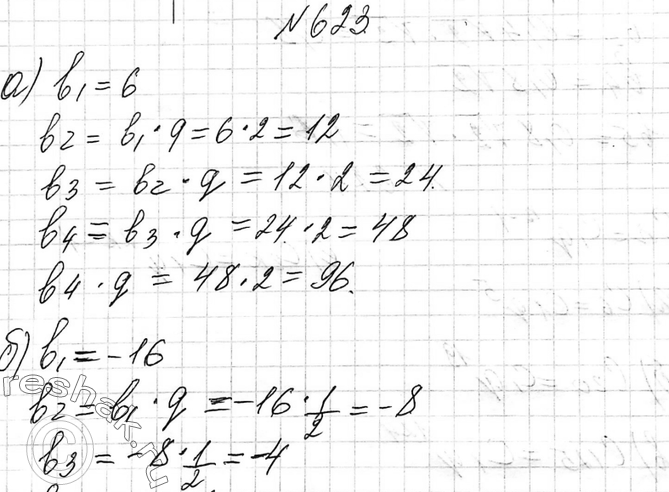 № 623
а) b₁ = 6
b₂ = b₁ · q = 6 · 2 = 12
b₃ = b₂ · q = 12 · 2 = 24.
b₄ = b₃ · q = 24 · 2 = 48
b₄ · q = 48 · 2 = 96.
б) b₁ = -16
b₂ = b₁ · q = -16 · 1/2 = -8
b₃ = -8 · 1/2 = -4
reshak.ru